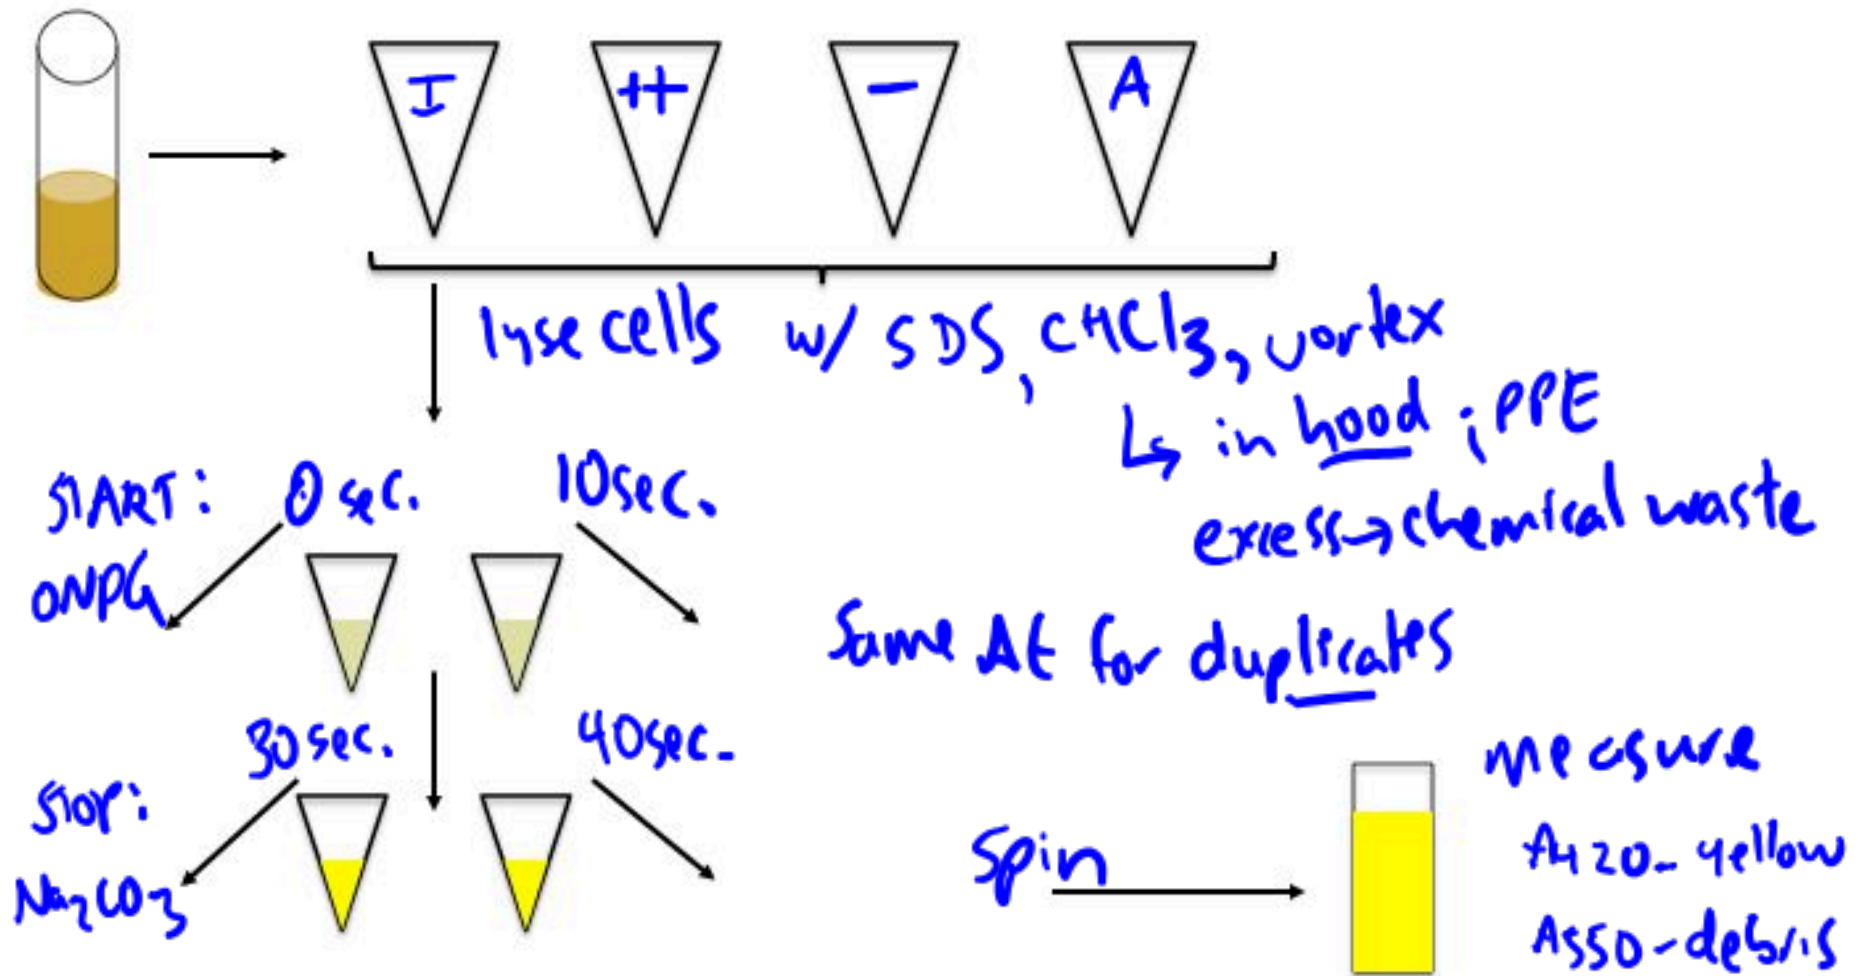 I ++ - A
lyse cells w/ SDS, CHCl3, vortex
↳ in hood; PPE
excess→chemical waste
START: 0 sec. 10sec.
ONPG
Same Δt for duplicates
30 sec. 40sec.
STOP:
Na2CO3
Spin
measure
A420-yellow
A550-debris